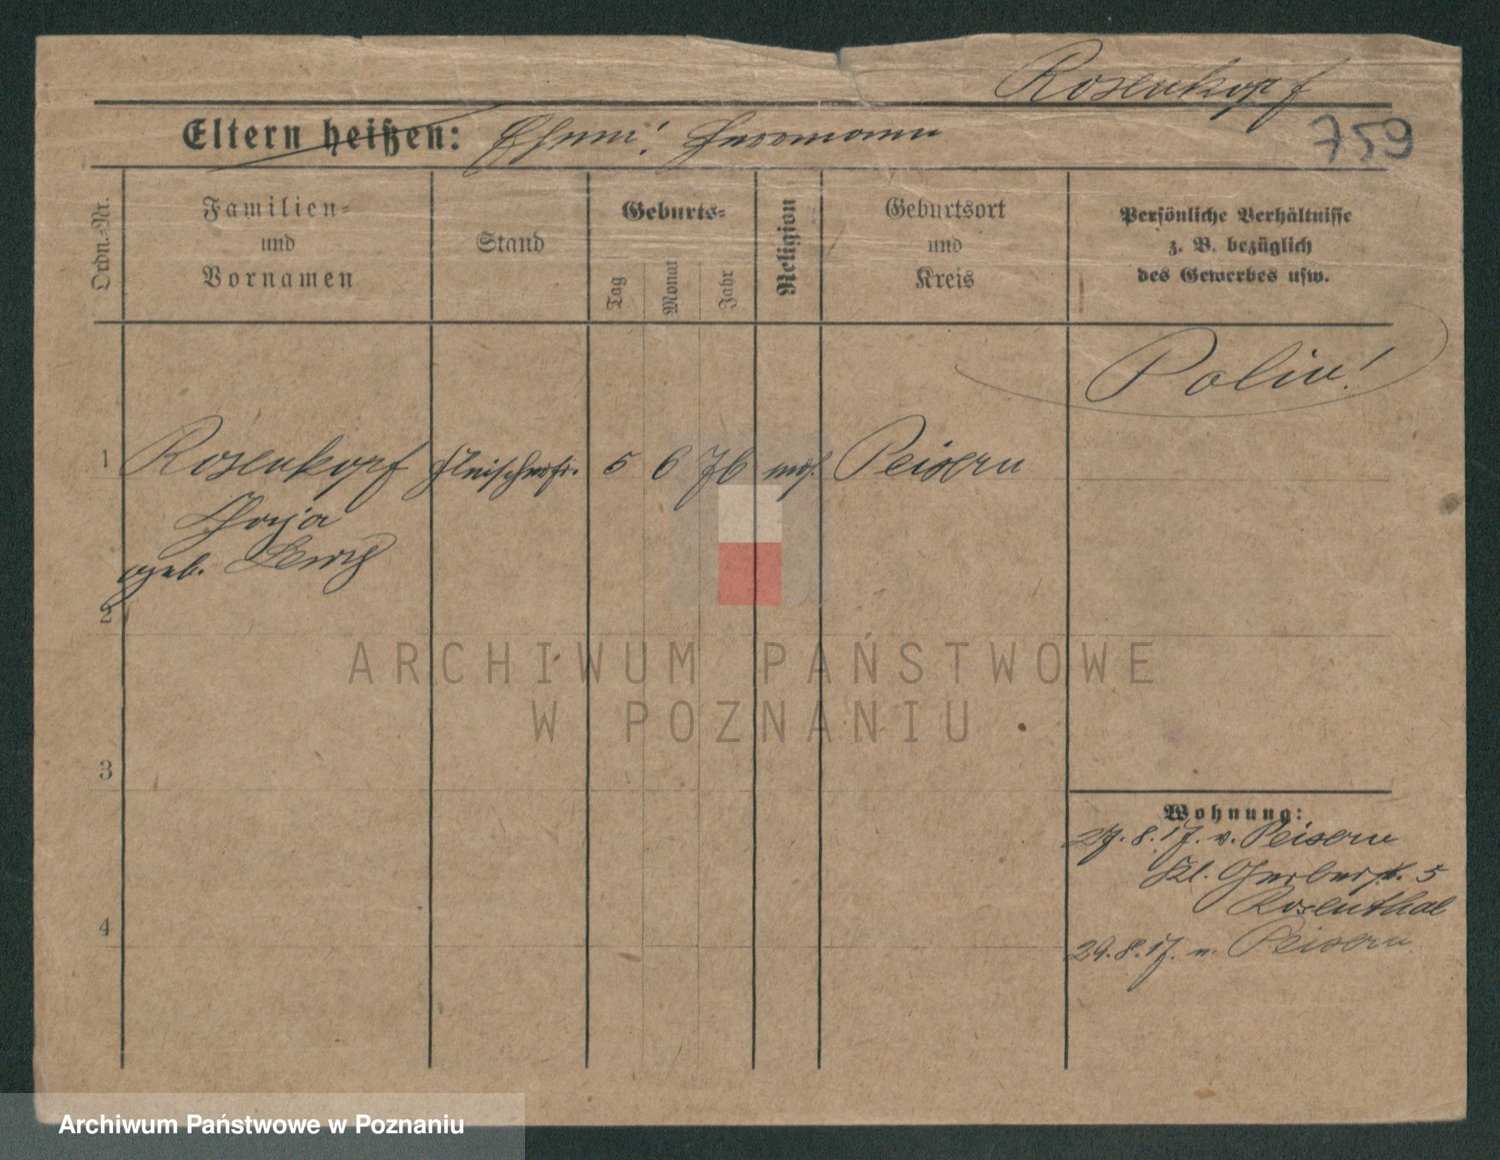 Rosenkopf
Eltern heißen: Ehem: Herrmann
759
Ordn.-Nr.
Familien-
und
Vornamen
Stand
Geburts-
Tag
Monat
Jahr
Religion
Geburtsort
und
Kreis
Persönliche Verhältnisse
z. B. bezüglich
des Gewerbes usw.
1 Rosenkopf Fleischersfr. 5 6 76 mos. Peisern
geb.
2
3
4
Wohnung:
27.8.17. v. Peisern
Kl. Gerberstr. 5
Rosenthal
29.8.17. n. Peisern
ARCHIWUM PAŃSTWOWE
W POZNANIU
Archiwum Państwowe w Poznaniu